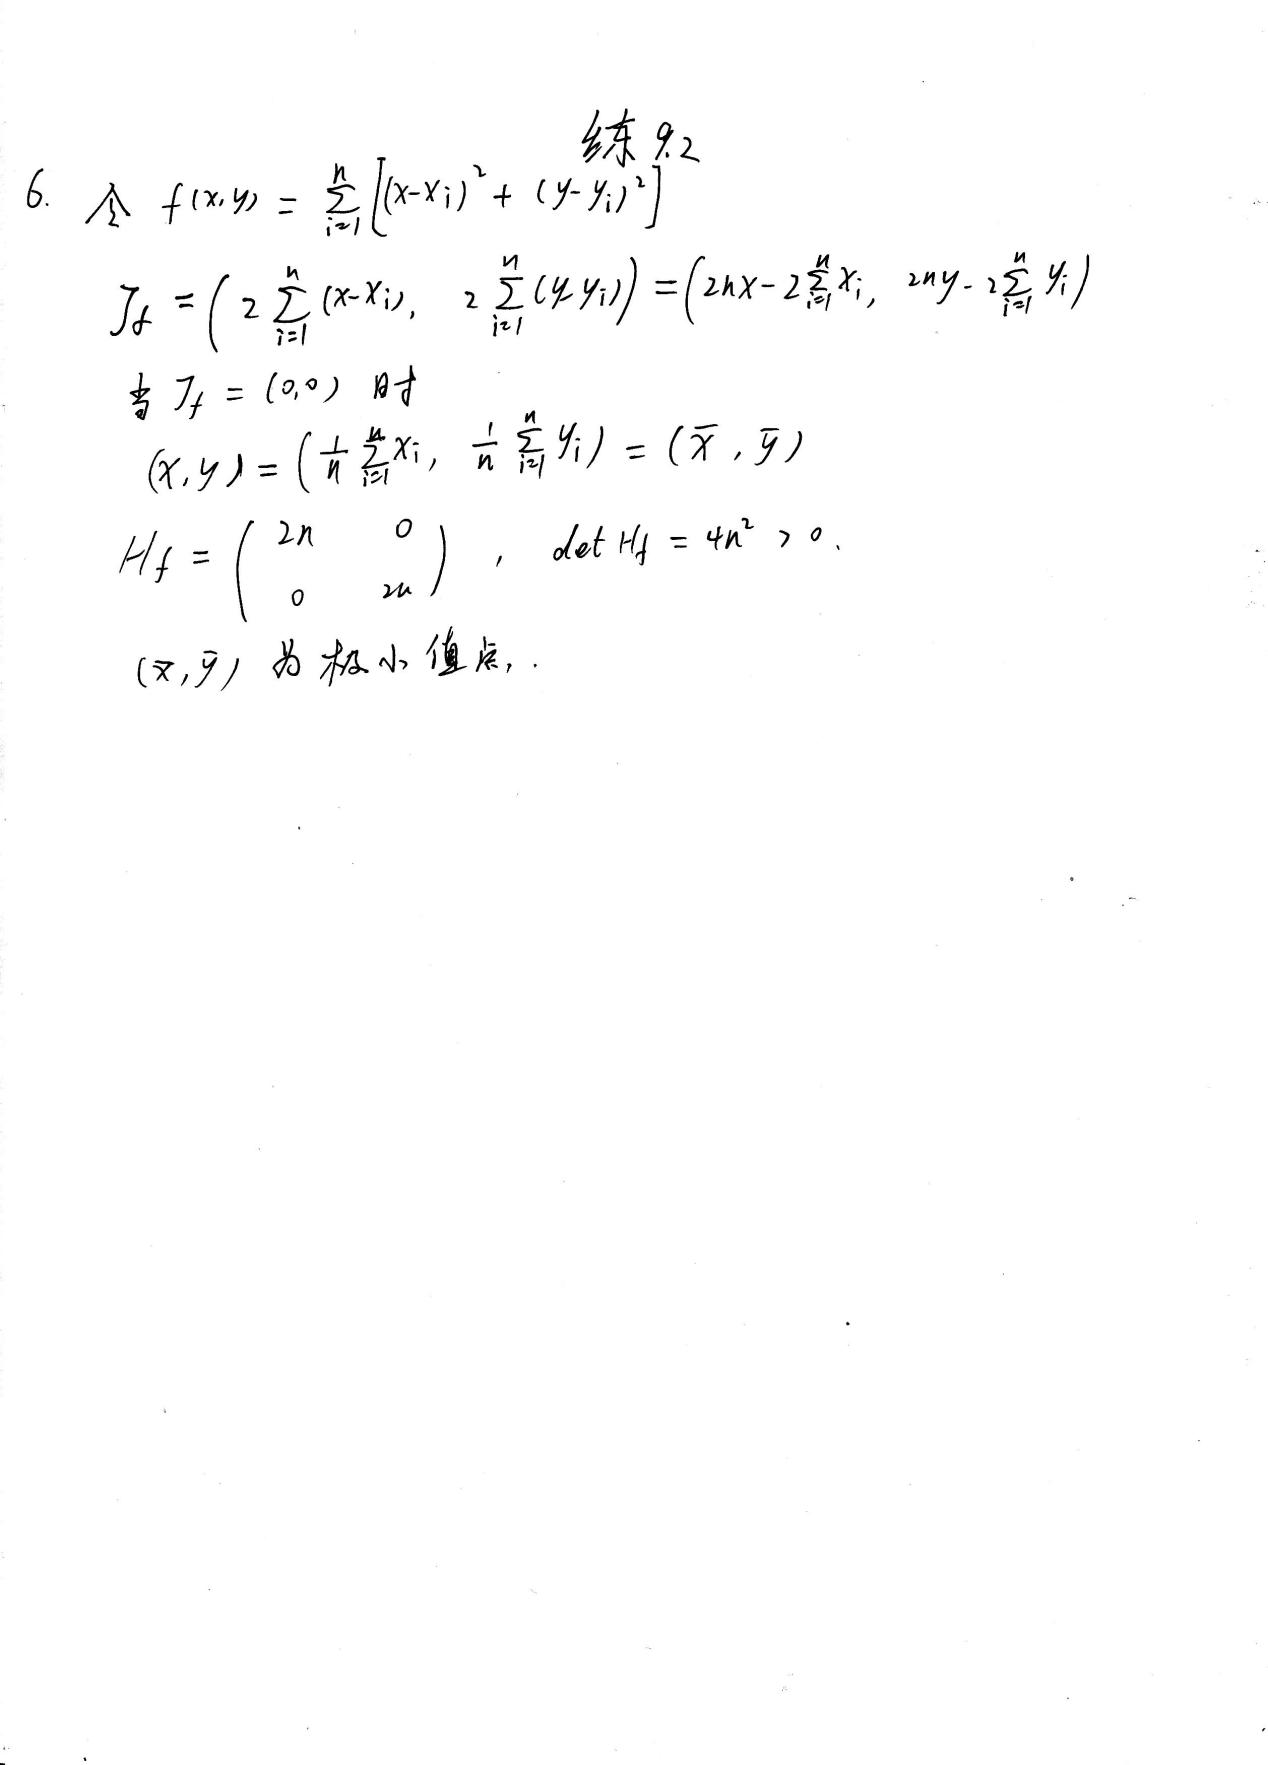 练 9.2
6. 令 f(x,y) = \sum_{i=1}^{n} [(x-x_i)^2 + (y-y_i)^2]
J_f = (2 \sum_{i=1}^{n} (x-x_i), 2 \sum_{i=1}^{n} (y-y_i)) = (2nx - 2\sum_{i=1}^{n} x_i, 2ny - 2\sum_{i=1}^{n} y_i)
当 J_f = (0,0) 时
(x,y) = (\frac{1}{n} \sum_{i=1}^{n} x_i, \frac{1}{n} \sum_{i=1}^{n} y_i) = (\bar{x}, \bar{y})
H_f = \begin{pmatrix} 2n & 0 \\ 0 & 2n \end{pmatrix}, det H_f = 4n^2 > 0.
(\bar{x}, \bar{y}) 为极小值点.